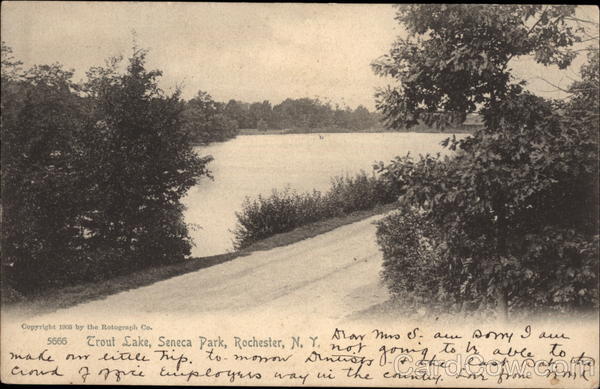 Copyright 1905 by the Rotograph Co.
5666 Trout Lake, Seneca Park, Rochester, N. Y.
Dear Mrs S. am sorry I am
not going to be able to
make our little trip. to-morrow Dentists etc.
crowd of office Employees way in the country. from
CardCow.com